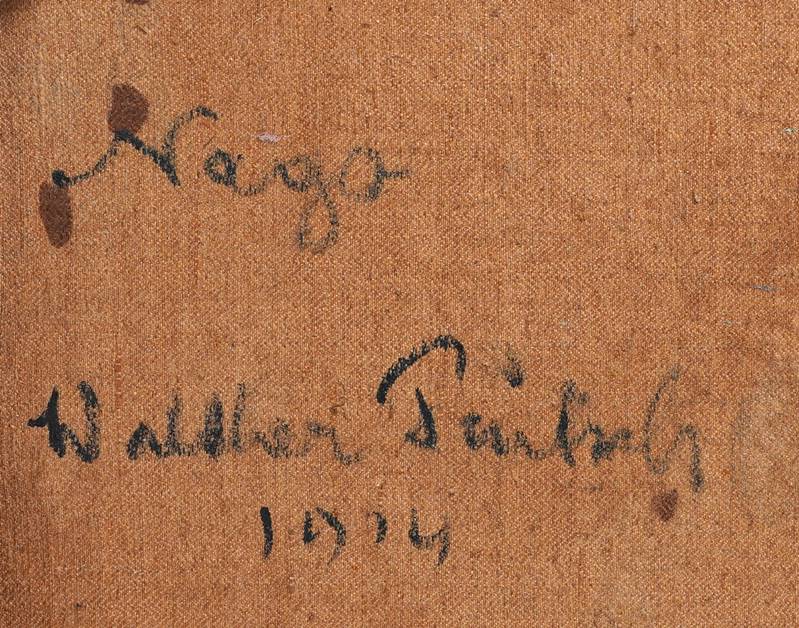 Nago
Walther Püttner
1914